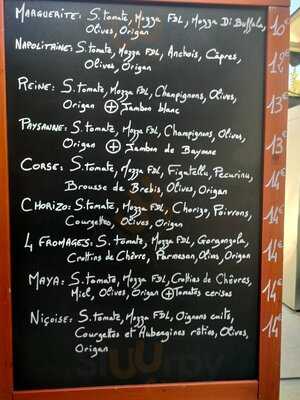 MARGUERITE: S. tomate, Mozza FDL, Mozza Di Buffala,
Olives, Origan
10€
NAPOLITAINE: S. tomate, Mozza FDL, Anchois, Câpres,
Olives, Origan
12€
REINE: S. tomate, Mozza FDL, Champignons, Olives,
Origan + Jambon blanc
13€
PAYSANNE: S. tomate, Mozza FDL, Champignons, Olives,
Origan + Jambon de Bayonne
13€
CORSE: S. tomate, Mozza FDL, Figatellu, Pecurinu,
Brousse de Brebis, Olives, Origan
14€
CHORIZO: S. tomate, Mozza FDL, Chorizo, Poivrons,
Courgettes, Olives, Origan
14€
4 FROMAGES: S. tomate, Mozza FDL, Gorgonzola,
Crottins de Chèvre, Parmesan, Olives, Origan
14€
MAYA: S. tomate, Mozza FDL, Crottins de Chèvres,
Miel, Olives, Origan + Tomates cerises
14€
NIÇOISE: S. tomate, Mozza FDL, Oignons cuits,
Courgettes et Aubergines rôties, Olives,
Origan
14€